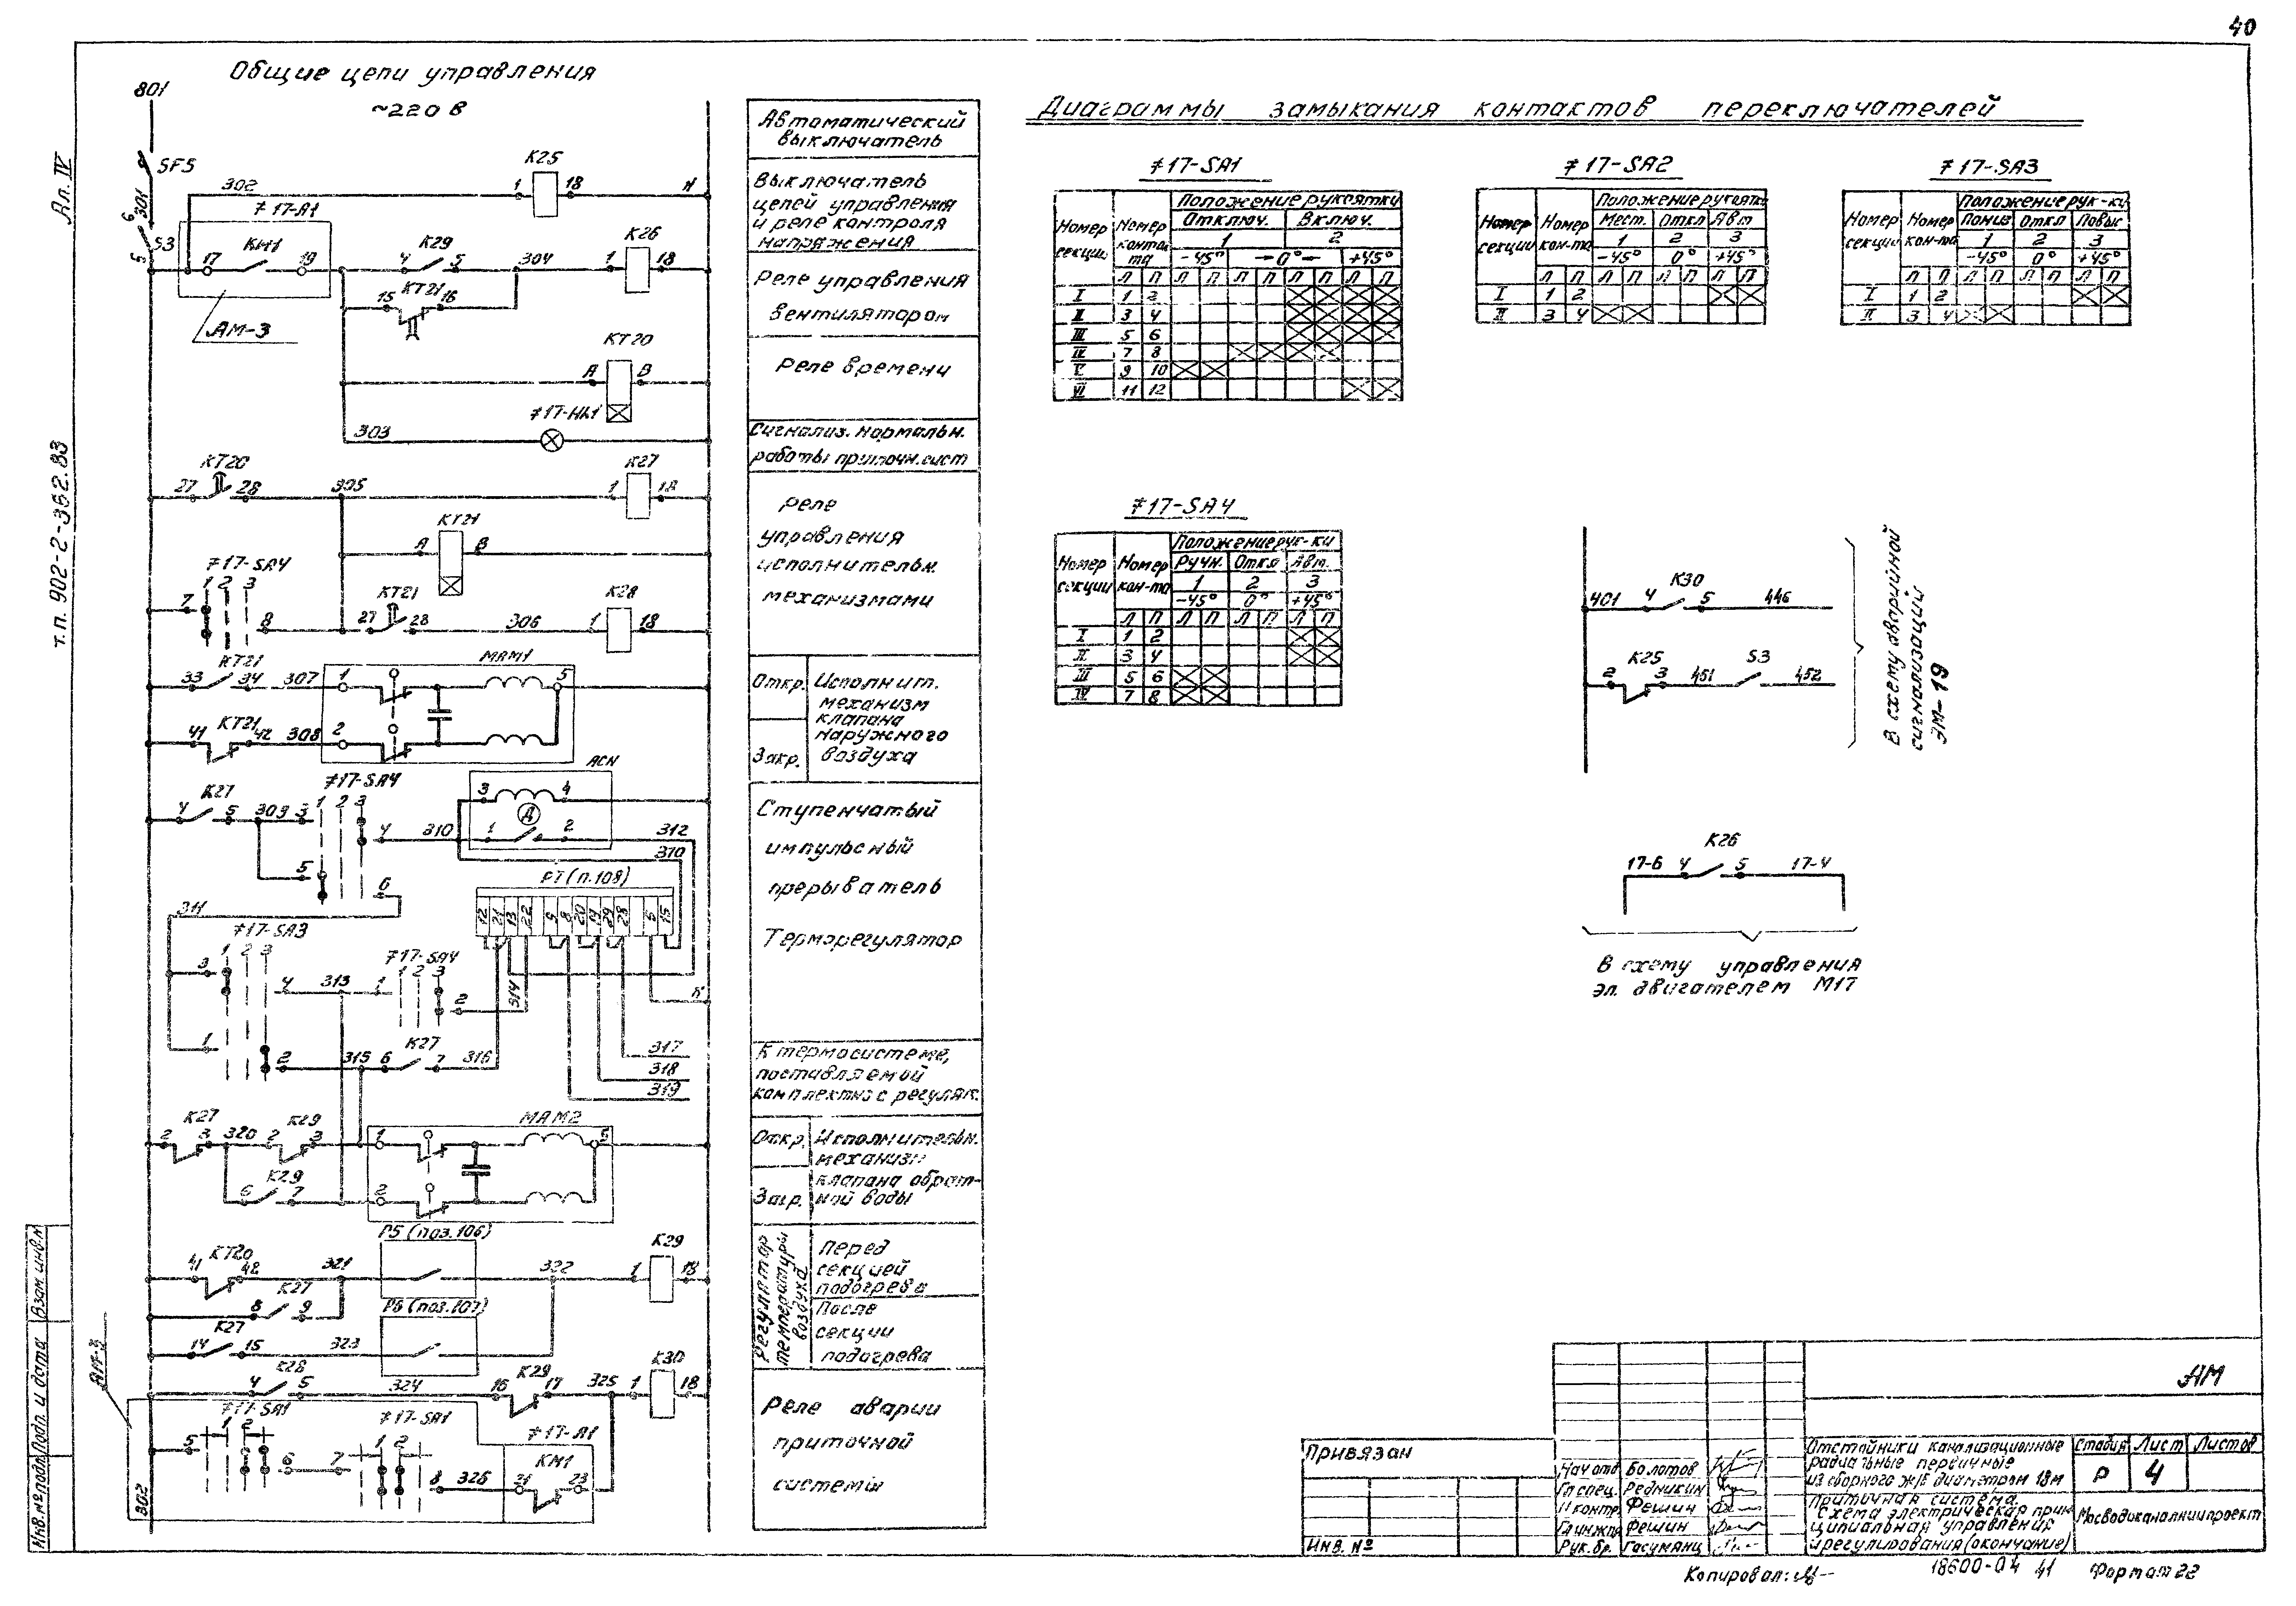 40
Общие цепи управления
~220 В
801
SF5
301
302
К25
1
18
N
717-А1
S3
17
КМ1
19
АМ-3
4
К29
5
304
К26
1
18
15
КТ21
16
КТ20
А
В
717-НL1
303
КТ20
27
28
305
К27
1
18
КТ21
А
В
717-SA4
1 2 3
7
8
КТ21
27
28
306
К28
1
18
КТ21
33
34
307
МАМ1
1
5
КТ21
41
42
308
2
К27
4
5
309
3
717-SA4
1 2 3
4
310
АСН
3
4
Д
1
2
312
310
5
6
311
РТ (п.108)
717-SA3
1 2 3
3
4
313
717-SA4
1 2 3
1
2
314
N
1
2
315
6
К27
7
316
317
318
319
К27
2
3
320
К29
2
3
МАМ2
1
5
К29
6
7
2
Р5 (поз.106)
КТ20
41
42
321
322
К29
1
18
К27
8
9
Р6 (поз.107)
К27
14
15
323
К28
4
5
324
К29
16
17
325
К30
1
18
АМ-3
717-SA1
1 2
5
6
717-SA1
1 2
7
8
326
717-А1
КМ1
21
23
302
Автоматический
выключатель
Выключатель
цепей управления
и реле контроля
напряжения
Реле управления
вентилятором
Реле времени
Сигнализ. нормальн.
работы приточн. сист
Реле
управления
исполнительн.
механизмами
Откр.
Закр.
Исполнит.
механизм
клапана
наружного
воздуха
Ступенчатый
импульсный
прерыватель
Терморегулятор
К термосистеме,
поставляемой
комплектно с регулят.
Откр.
Закр.
Исполнительн.
механизм
клапана обрат-
ной воды
Регулятор
температуры
воздуха
Перед
секцией
подогрева
После
секции
подогрева
Реле аварии
приточной
системы
Диаграммы замыкания контактов переключателей
717-SA1
Номер секции
Номер контакта
Положение рукоятки
Отключ. Включ.
1 2
-45° →0°← +45°
Л П Л П Л П Л П Л П
I 1 2
II 3 4
III 5 6
IV 7 8
V 9 10
VI 11 12
717-SA2
Номер секции
Номер кон-та
Положение рукоятки
Мест. Откл Авт
1 2 3
-45° 0° +45°
Л П Л П Л П Л П
I 1 2
II 3 4
717-SA3
Номер секции
Номер кон-та
Положение рук-ки
Пониз Откл Повыс
1 2 3
-45° 0° +45°
Л П Л П Л П Л П
I 1 2
II 3 4
717-SA4
Номер секции
Номер кон-та
Положение рук-ки
Ручн. Откл Авт.
1 2 3
-45° 0° +45°
Л П Л П Л П Л П
I 1 2
II 3 4
III 5 6
IV 7 8
401
4
К30
5
446
2
К25
3
451
S3
452
В схему аварийной
сигнализации
ЭМ-19
17-6
4
К26
5
17-4
В схему управления
эл. двигателем М17
Ал. IV
т.п. 902-2-362.83
Взам. инв. №
Подп. и дата
Инв. № подл.
Привязан
Инв. №
Нач отд Болотов
Гл спец. Редникин
Н контр. Фешин
Гл инж пр Фешин
Рук. бр. Гасумянц
АМ
Отстойники канализационные
радиальные первичные
из сборного ж/б диаметром 18м
Стадия Лист Листов
Р 4
Приточная система.
Схема электрическая прин-
ципиальная управления
и регулирования (окончание)
Мосводоканалниипроект
Копировал:
18600-04 41
Формат 22